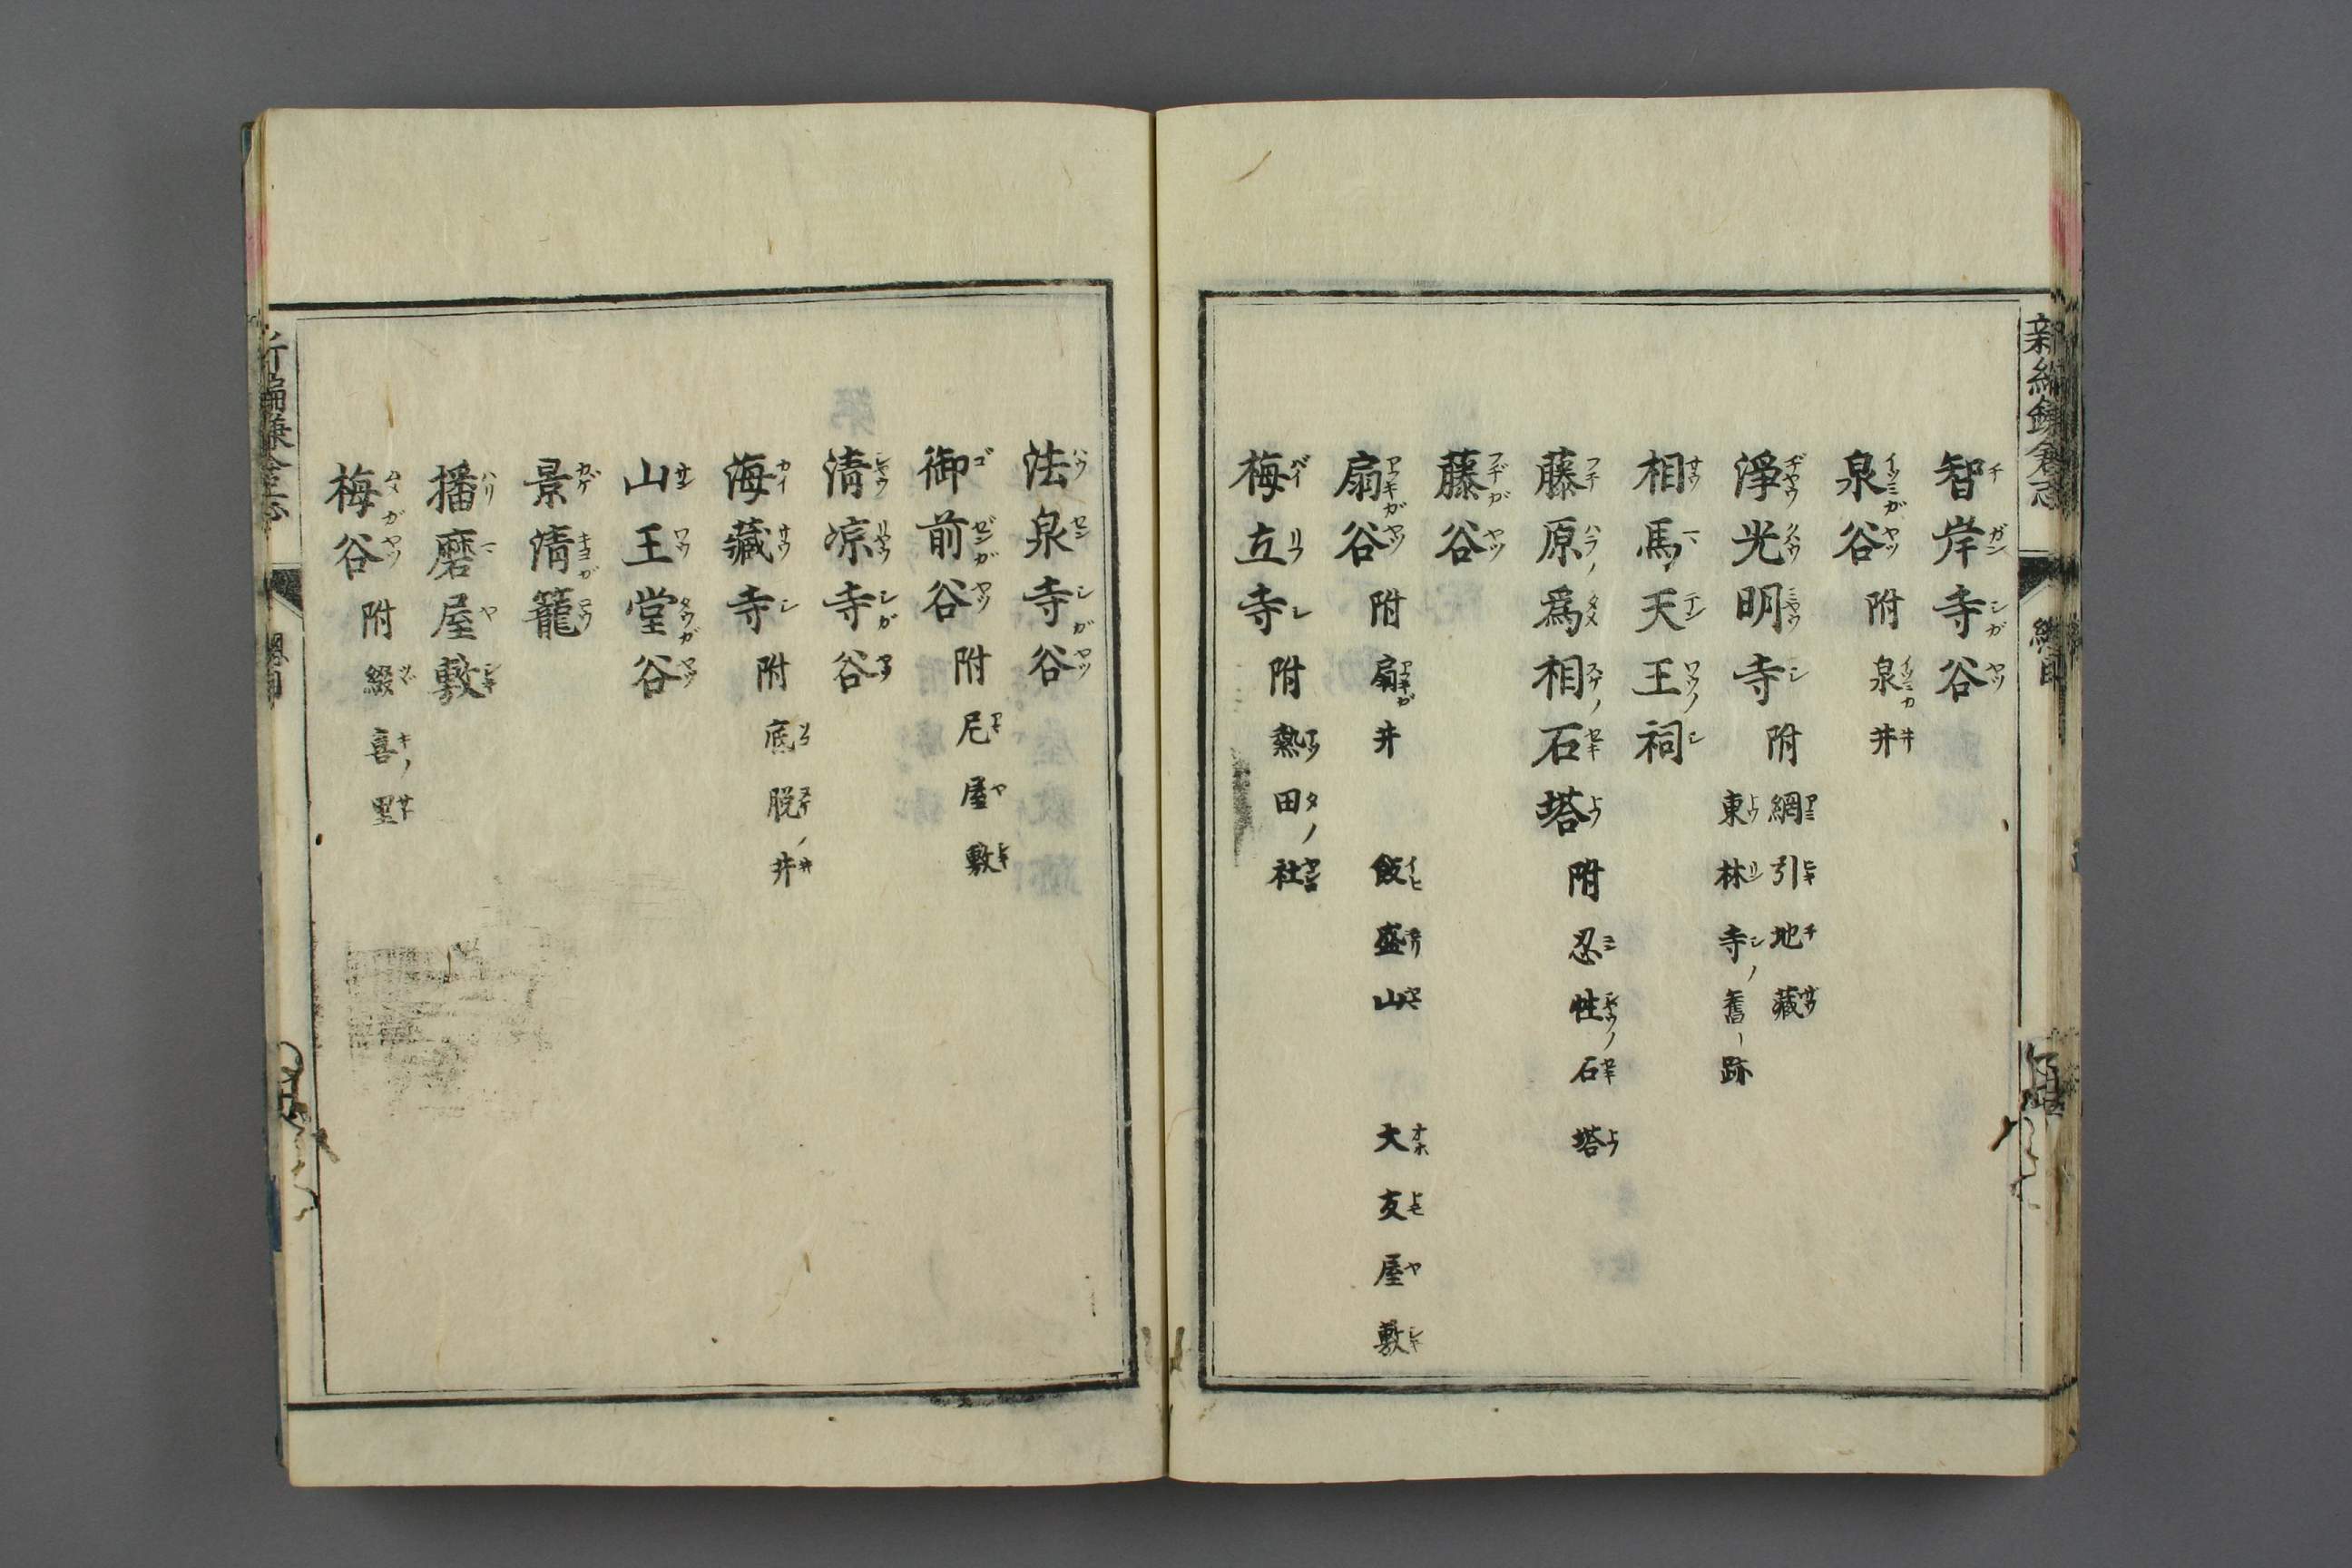 新編鎌倉志
總目
智岸寺谷
泉谷 附 泉井
淨光明寺 附 網引地藏 東林寺舊跡
相馬天王祠
藤原爲相石塔 附 忍性石塔
藤谷
扇谷 附 扇井 飯盛山 大友屋敷
梅立寺 附 熱田社
法泉寺谷
御前谷 附 尼屋敷
清凉寺谷
海藏寺 附 底脱井
山王堂谷
景清籠
播磨屋敷
梅谷 附 綴喜里